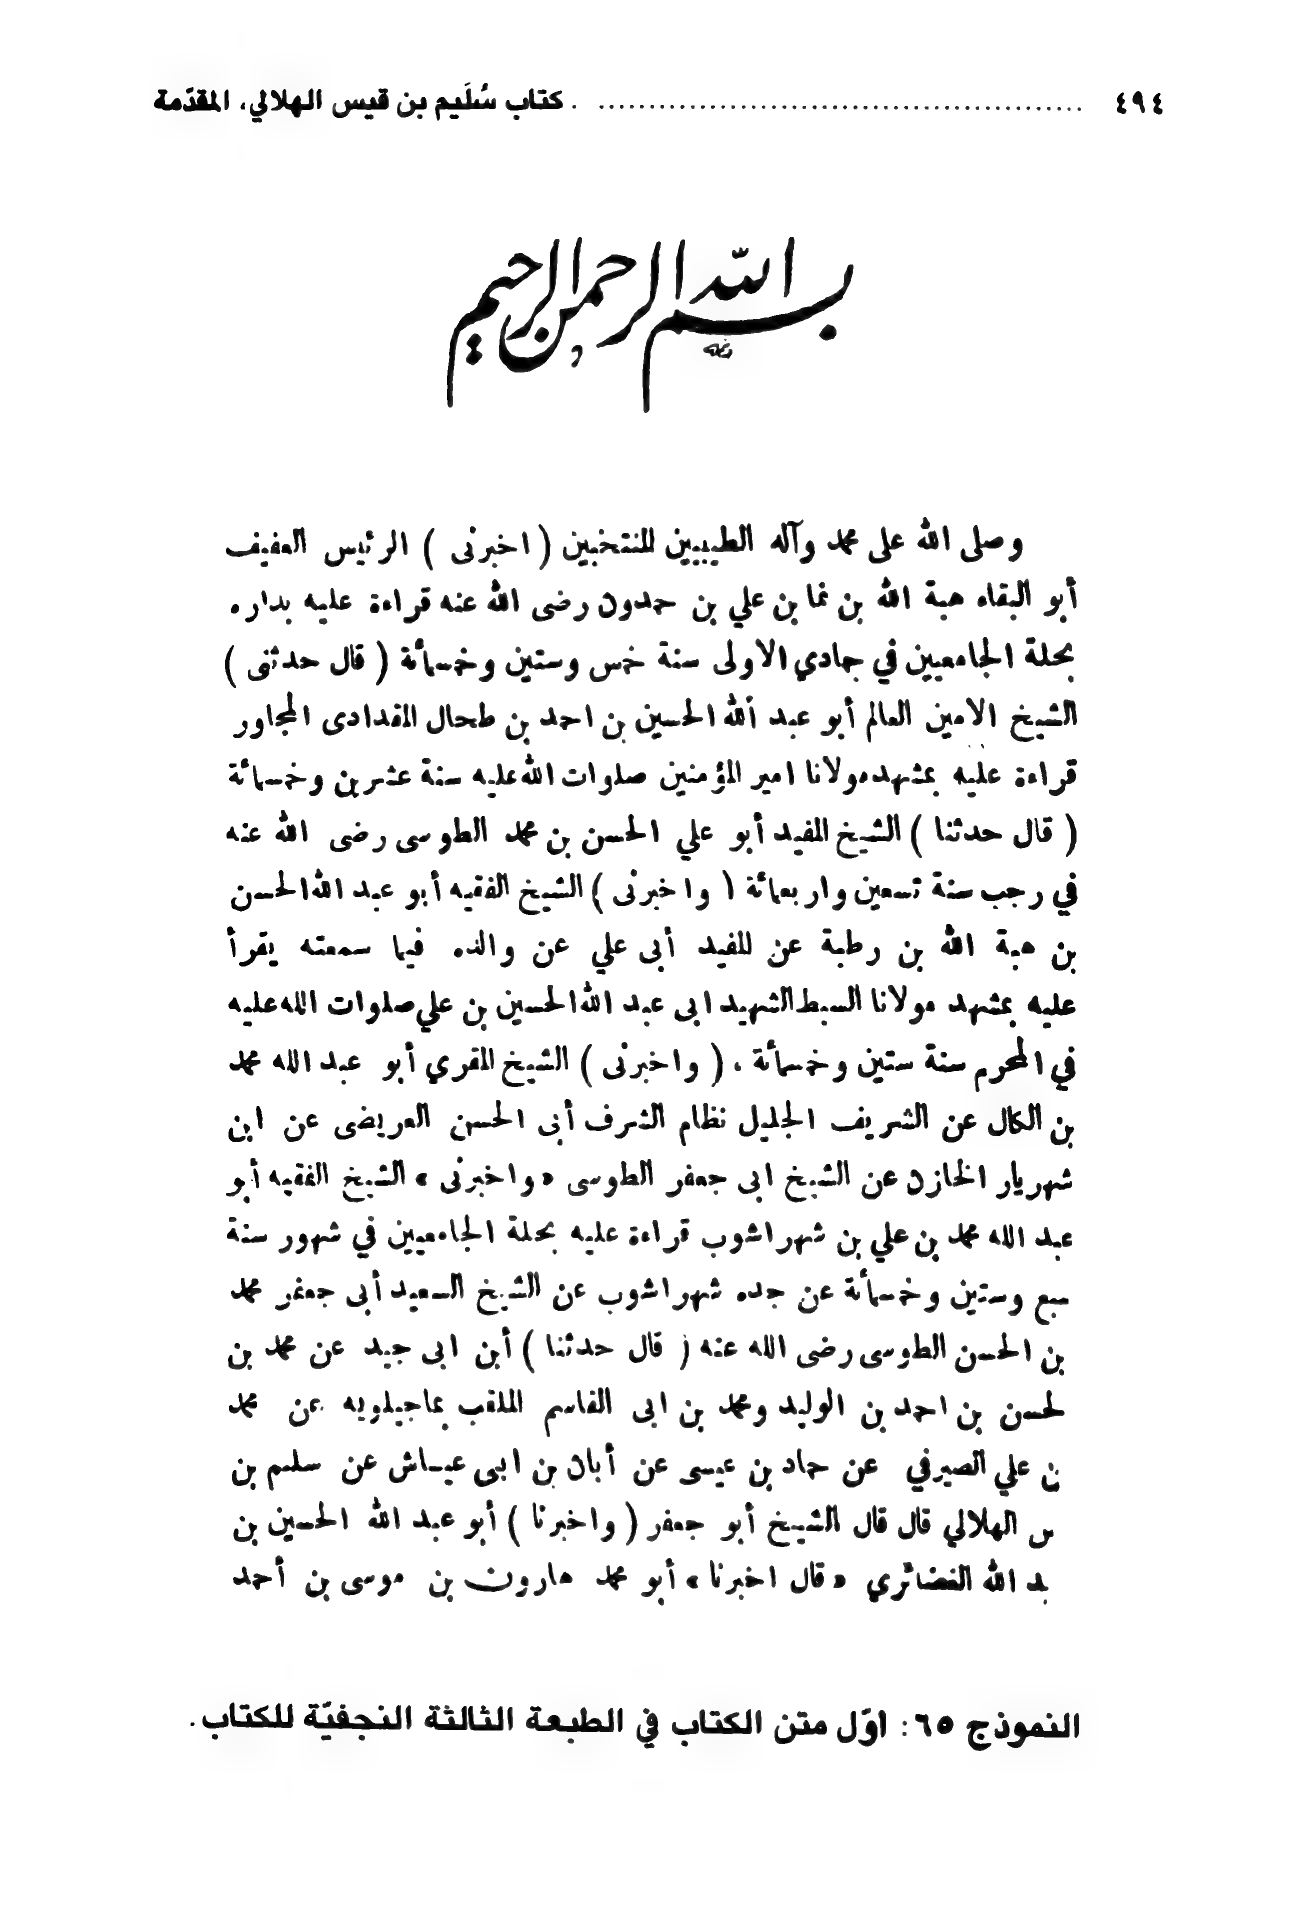 ٤٩٤ ................................................ كتاب سُلَيم بن قيس الهلالي، المقدّمة
بسم الله الرحمن الرحيم
وصلى الله على محمد وآله الطيبين المنتخبين ( اخبرنى ) الرئيس العفيف
أبو البقاء هبة الله بن نما بن علي بن حمدون رضى الله عنه قراءة عليه بداره
بحلة الجامعيين في جمادي الاولى سنة خمس وستين وخمسمأة ( قال حدثنى )
الشيخ الامين العالم أبو عبد الله الحسين بن احمد بن طحال المقدادى المجاور
قراءة عليه بمشهد مولانا امير المؤمنين صلوات الله عليه سنة عشرين وخمسمائة
( قال حدثنا ) الشيخ المفيد أبو علي الحسن بن محمد الطوسى رضى الله عنه
في رجب سنة تسعين واربعمائة ( واخبرنى ) الشيخ الفقيه أبو عبد الله الحسن
بن هبة الله بن رطبة عن المفيد أبى علي عن والده فيما سمعته يقرأ
عليه بمشهد مولانا السبط الشهيد ابى عبد الله الحسين بن علي صلوات الله عليه
في المحرم سنة ستين وخمسمأة ، ( واخبرنى ) الشيخ المقري أبو عبد الله محمد
بن الكال عن الشريف الجليل نظام الشرف أبى الحسن العريضى عن ابن
شهريار الخازن عن الشيخ ابى جعفر الطوسى « واخبرنى » الشيخ الفقيه أبو
عبد الله محمد بن علي بن شهراشوب قراءة عليه بحلة الجامعيين في شهور سنة
سبع وستين وخمسمأة عن جده شهراشوب عن الشيخ السعيد أبى جعفر محمد
بن الحسن الطوسى رضى الله عنه ( قال حدثنا ) أبن ابى جيد عن محمد بن
لحسن بن احمد بن الوليد ومحمد بن ابى القاسم الملقب بماجيلويه عن محمد
ن علي الصيرفي عن حماد بن عيسى عن أبان بن ابى عياش عن سليم بن
س الهلالي قال قال الشيخ أبو جعفر ( واخبرنا ) أبو عبد الله الحسين بن
بد الله الغضائري « قال اخبرنا » أبو محمد هارون بن موسى بن أحمد
النموذج ٦٥: اوّل متن الكتاب في الطبعة الثالثة النجفيّة للكتاب.